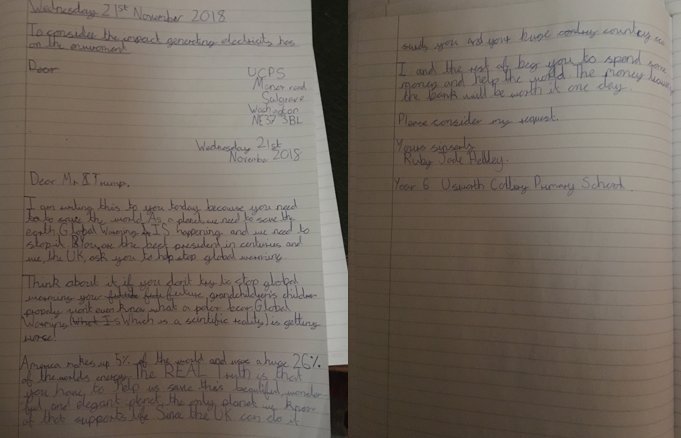 Wednesday 21st November 2018
To consider the impact generating electricity has
on the enviroment
Dear
UCPS
Manor road
Sulgrave
Washington
NE37 3BL
Wednesday 21st
November 2018
Dear Mr Trump,
I am writing this to you today because you need
to save the world. As a planet we need to save the
earth. Global Warming IS happening and we need to
stop it. You are the best president in centuries and
we, the UK, ask you to stop global warming
Think about it, if you don't try to stop global
warming your future grandchildren's children
wont even know what a polar bear. Global
Warming (Which is a scientific reality) is getting
worse!
America makes up 5% of the world and uses a huge 26%
of the worlds energy. The REAL Truth is that
you have to help us save this beautiful, wonder-
ful and elegant planet the only planet we know
of that supports life. Since the UK can do it
you and your huge country can
I and the rest of beg you to spend some
money and help the world. The money leaving
the bank will be worth it one day.
Please consider my request.
Yours
Ruby Jade
Year 6 Usworth Colliery Primary School.